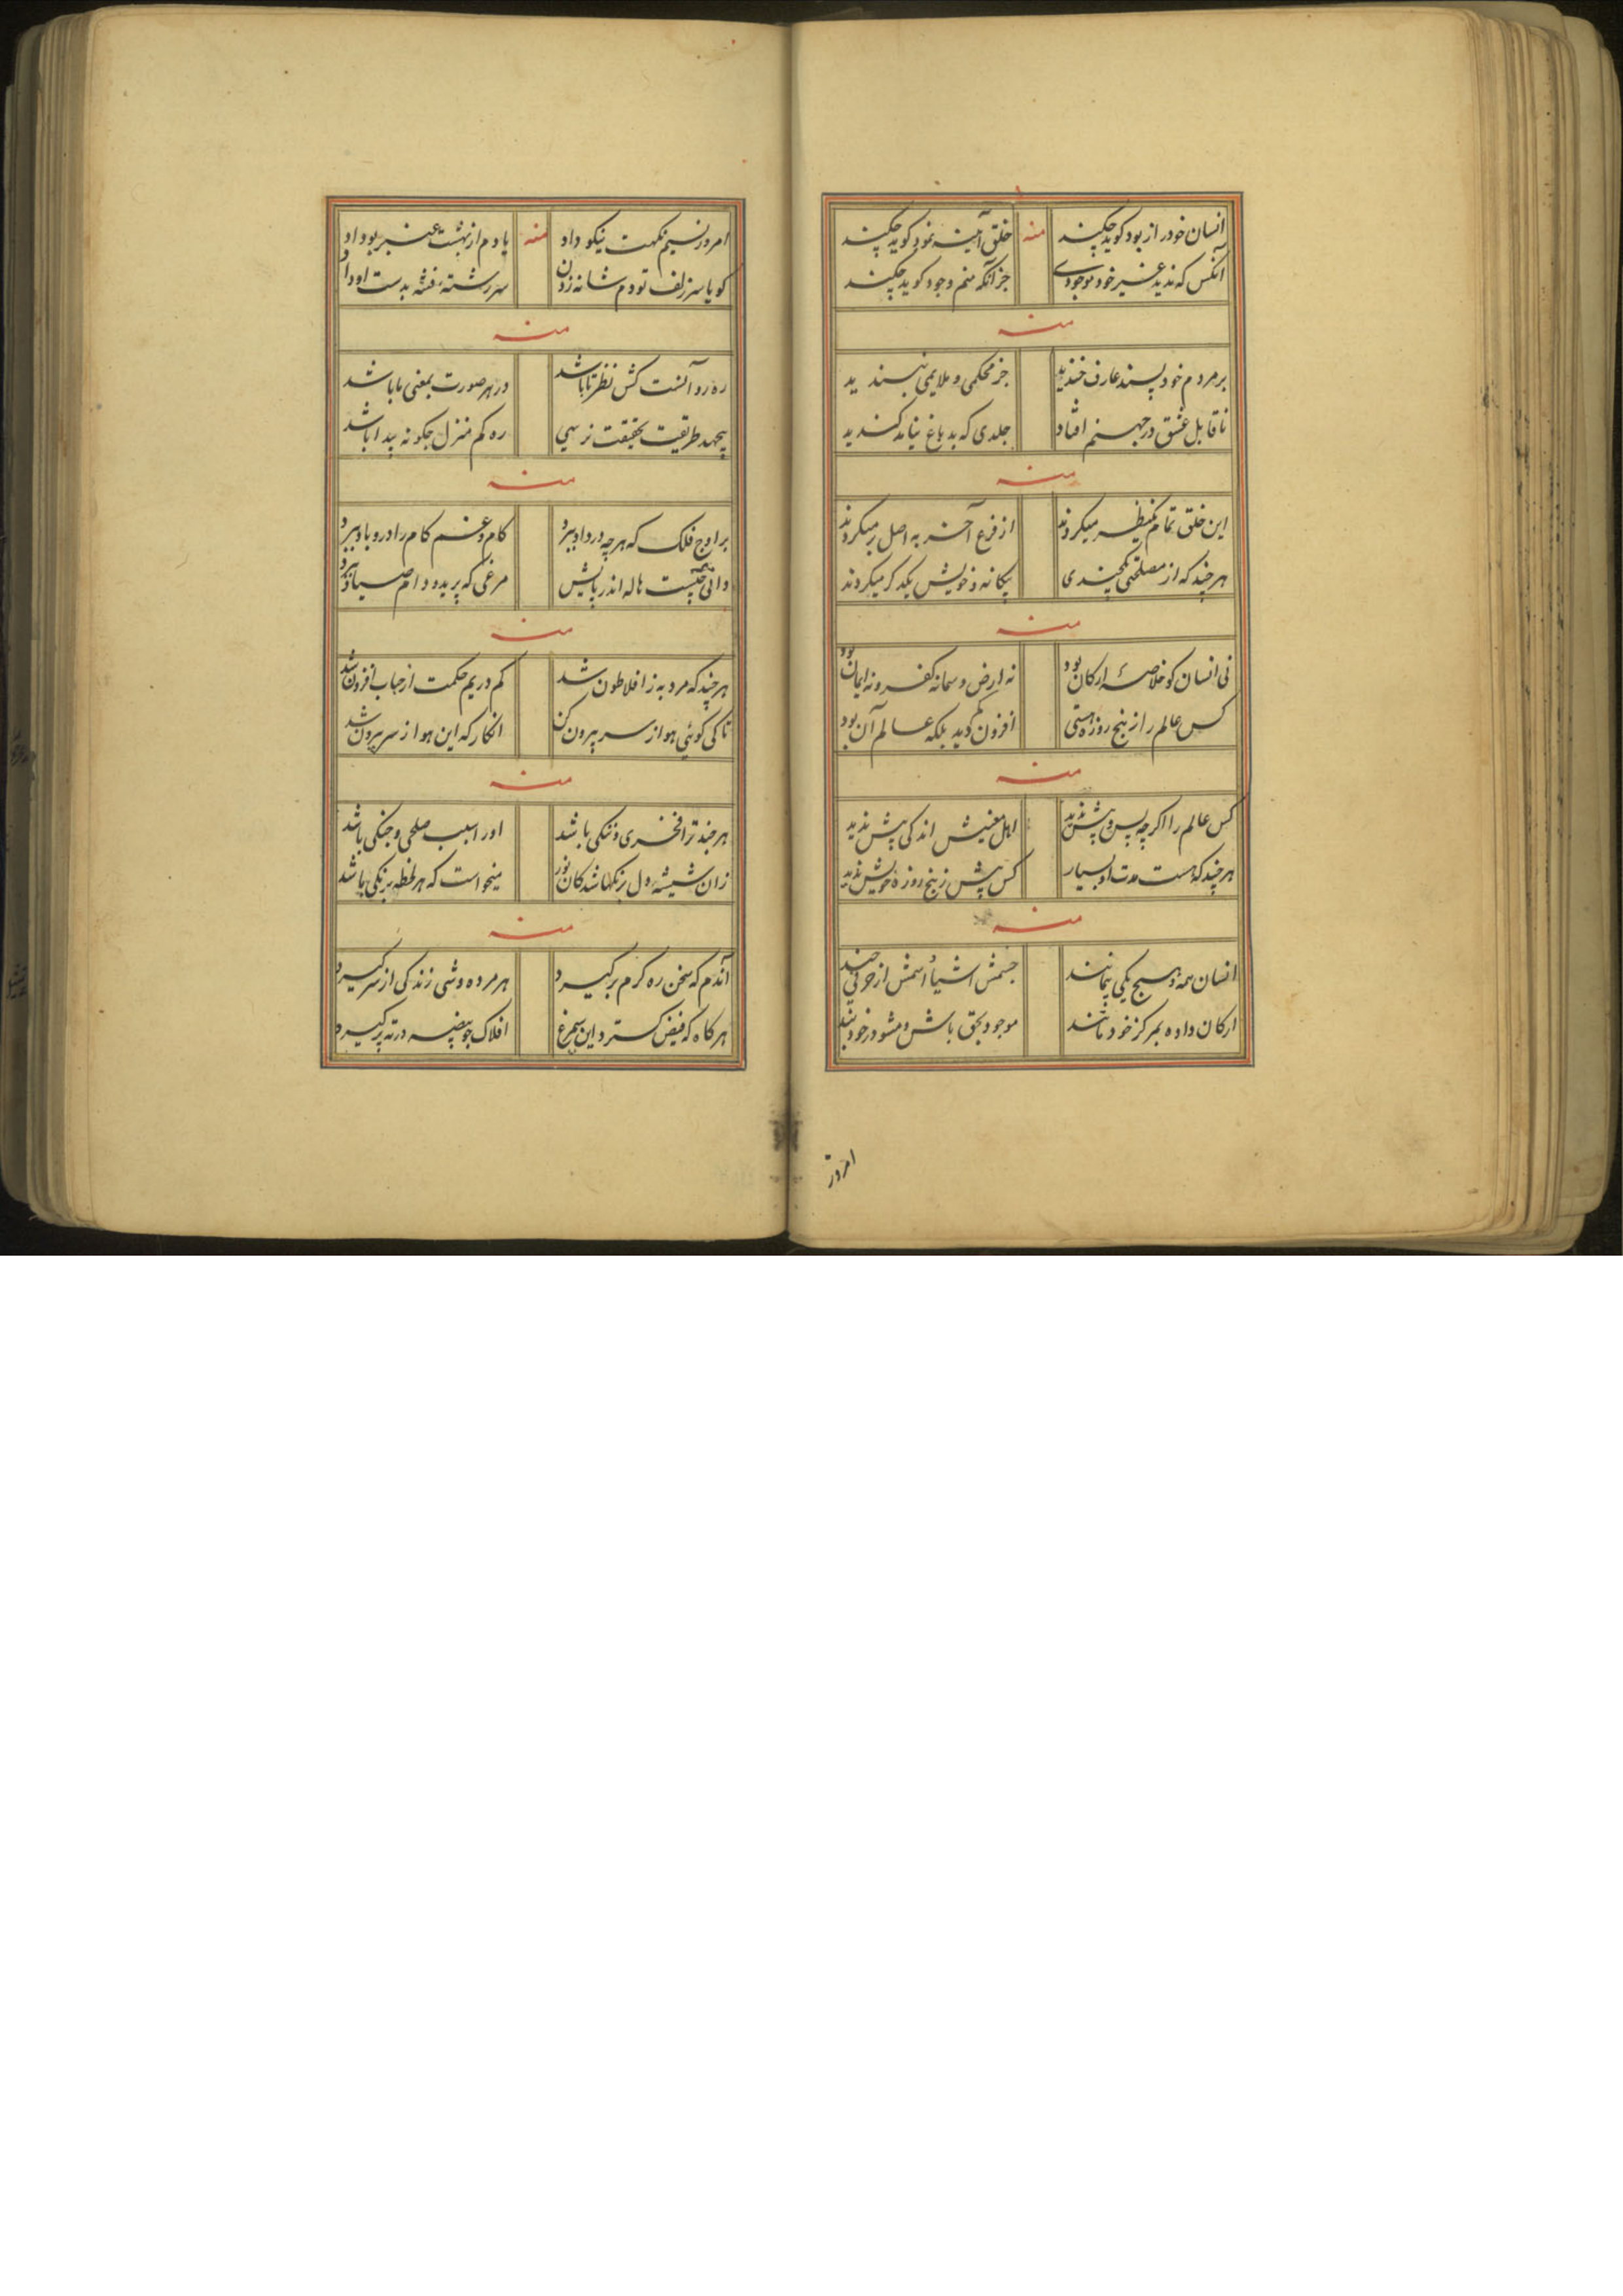 انسان خود را ز بود کوید چکند منه خلق آینه نمود کوید چکند
آنکس که ندید غیر خود موجودی جز آنکه منم وجود کوید چکند
منه
بر مردم خود پسند عارف خندید جز محکمی و ملایمی نپسندید
ناقابل عشق در جهنم افتاد جلدی که بدباغ نیامد کندید
منه
این خلق تمام یکنظر میکردند از فرع آخر به اصل بر میکردند
هر چند که از مصلحتی یکچندی بیکانه و خویش یکدکر میکردند
منه
نی انسان کو خلاصه ارکان بود نه ارض و سما نه کفر و نه ایمان بود
کس عالم را ز پنج روزه هستی افزون دید بلکه عالم آن بود
منه
کس عالم را اکر چه پس و پیش ندید اهل معنیش اندکی پیش ندید
هر چند که هست مدت او بسیار کس پیش ز پنج روزه خویش ندید
منه
انسان همه و هیچ یکی پیمانند جسمش اشیا اسمش از حرفی چند
ارکان داده بمرکز خود تا شند موجود بحق باش و مشو در خود بند
امروز
امروز نسیم نکهت نیکو داد منه یادم از بهشت عنبر بو داد
کویا سر زلف تو دم شانه زدن سر رشته فتنه بدست او داد
منه
ره رو آنست کش نظر تا باشد در هر صورت بمعنی ما باشد
بیجهد طریقت بحقیقت نرسی ره کم منزل چکونه پیدا باشد
منه
بر اوج فلک که هر چه درد او ببرد کام و غم کام را درو باد ببرد
دانی مه چیست هاله اندر پایش مرغی که پرید و دام صیاد ببرد
منه
هر چند که مرد به ز افلاطون شد کم در یم حکمت از حباب افزون شد
تا کی کوئی هوا ز سر بیرون کن انکار که این هوا ز سر بیرون شد
منه
هر چند ترا فخری و ننکی باشد او را سبب صلحی و جنکی باشد
زان شیشه دل برنکها شد کان نور میخواست که هر لحظه برنکی باشد
منه
آندم که سخن ره کرم بر کیرد هر مرده وشی زندکی از سر کیرد
هر کاه که فیض کسترد این سیمرغ افلاک چو بیضه در ته پر کیرد